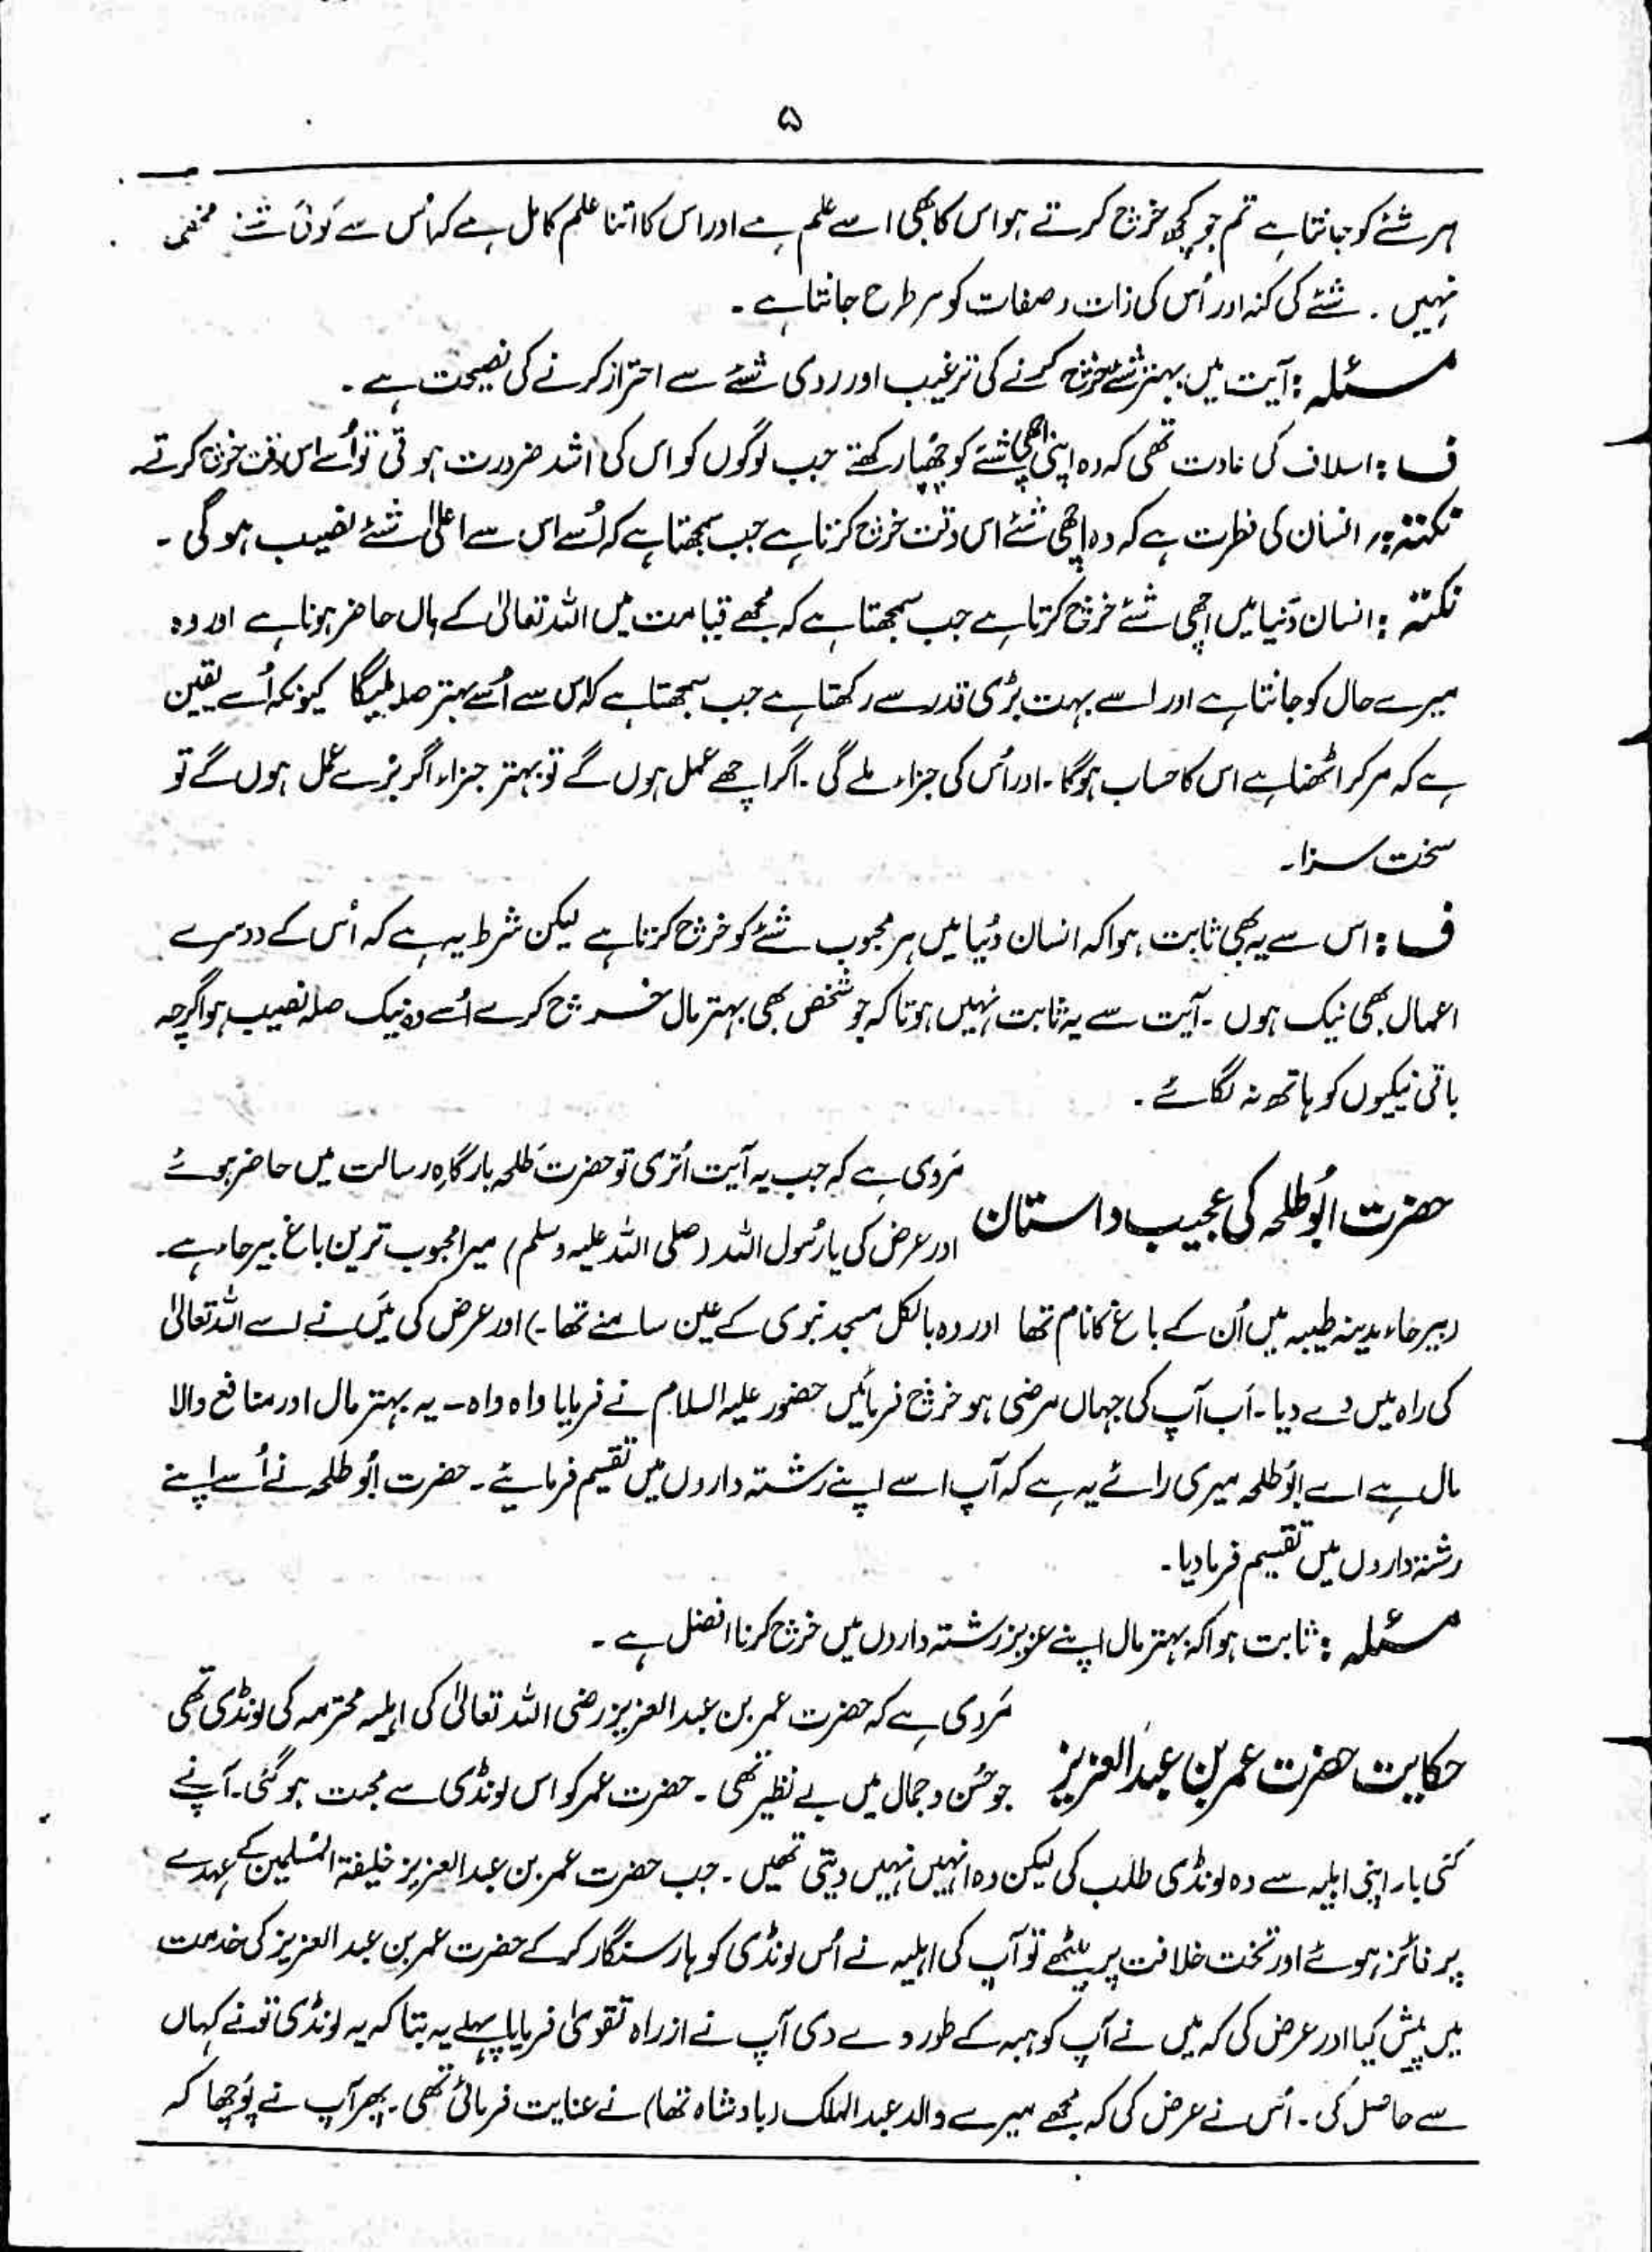 ۵
ہر شئے کو جانتا ہے تم جو کچھ خرچ کرتے ہو اس کا بھی اسے علم ہے اور اس کا اتنا علم کامل ہے کہ اُس سے کوئی شئے مخفی
نہیں ۔ شئے کی کنہ اور اُس کی ذات و صفات کو ہر طرح جانتا ہے ۔
مسئلہ : آیت میں بہتر شئے خرچ کرنے کی ترغیب اور ردی شئے سے احتراز کرنے کی نصیحت ہے ۔
ف : اسلاف کی عادت تھی کہ وہ اپنی اچھی شئے کو چُھپا رکھتے جب لوگوں کو اس کی اشد ضرورت ہوتی تو اُسے اس وقت خرچ کرتے۔
نکتہ : انسان کی فطرت ہے کہ وہ اچھی شئے اس وقت خرچ کرتا ہے جب سمجھتا ہے کہ اُسے اس سے اعلیٰ شئے نصیب ہو گی ۔
نکتہ : انسان دُنیا میں اچھی شئے خرچ کرتا ہے جب سمجھتا ہے کہ مجھے قیامت میں اللہ تعالیٰ کے ہاں حاضر ہونا ہے اور وہ
میرے حال کو جانتا ہے اور اسے بہت بڑی قدر سے رکھتا ہے جب سمجھتا ہے کہ اس سے اُسے بہتر صلہ ملیگا کیونکہ اُسے یقین
ہے کہ مر کر اٹھنا ہے اس کا حساب ہوگا ۔ اور اُس کی جزاء ملے گی ۔ اگر اچھے عمل ہوں گے تو بہتر جزاء اگر بُرے عمل ہوں گے تو
سخت سزا ۔
ف : اس سے یہ بھی ثابت ہوا کہ انسان دُنیا میں ہر محبوب شئے کو خرچ کرتا ہے لیکن شرط یہ ہے کہ اُس کے دوسرے
اعمال بھی نیک ہوں ۔ آیت سے یہ ثابت نہیں ہوتا کہ جو شخص بھی بہتر مال خرچ کرے اُسے وہ نیک صلہ نصیب ہو اگرچہ
باقی نیکیوں کو ہاتھ نہ لگائے ۔
حضرت ابُوطلحہ کی عجیب داستان
مَروی ہے کہ جب یہ آیت اُتری تو حضرت طلحہ بارگاہِ رسالت میں حاضر ہوئے
اور عرض کی یا رسُول اللہ (صلی اللہ علیہ وسلم) میرا محبوب ترین باغ بیرحاء ہے ۔
(بیرحاء مدینہ طیبہ میں اُن کے باغ کا نام تھا اور وہ بالکل مسجد نبوی کے عین سامنے تھا ۔) اور عرض کی مَیں نے اسے اللہ تعالیٰ
کی راہ میں دے دیا ۔ اَب آپ کی جہاں مرضی ہو خرچ فرمائیں حضور علیہ السلام نے فرمایا واہ واہ ۔ یہ بہتر مال اور منافع والا
مال ہے اے ابُوطلحہ میری رائے یہ ہے کہ آپ اسے اپنے رشتہ داروں میں تقسیم فرمایئے ۔ حضرت ابُوطلحہ نے اُسے اپنے
رشتہ داروں میں تقسیم فرما دیا ۔
مسئلہ : ثابت ہوا کہ بہتر مال اپنے عزیز رشتہ داروں میں خرچ کرنا افضل ہے ۔
حکایت حضرت عمر بن عبدالعزیز
مَروی ہے کہ حضرت عمر بن عبد العزیز رضی اللہ تعالیٰ کی اہلیہ محترمہ کی لونڈی تھی
جو حُسن و جمال میں بے نظیر تھی ۔ حضرت عمر کو اس لونڈی سے محبت ہو گئی ۔ آپ نے
کئی بار اپنی اہلیہ سے وہ لونڈی طلب کی لیکن وہ انہیں نہیں دیتی تھیں ۔ جب حضرت عمر بن عبد العزیز خلیفۃ المسلمین کے عہدے
پر فائز ہوئے اور تخت خلافت پر بیٹھے تو آپ کی اہلیہ نے اُس لونڈی کو ہار سنگار کر کے حضرت عمر بن عبد العزیز کی خدمت
میں پیش کیا اور عرض کی کہ میں نے آپ کو ہبہ کے طور دے دی آپ نے از راہ تقویٰ فرمایا پہلے یہ بتا کہ یہ لونڈی تونے کہاں
سے حاصل کی ۔ اُس نے عرض کی کہ مجھے میرے والد عبد الملک (بادشاہ تھا) نے عنایت فرمائی تھی ۔ پھر آپ نے پُوچھا کہ